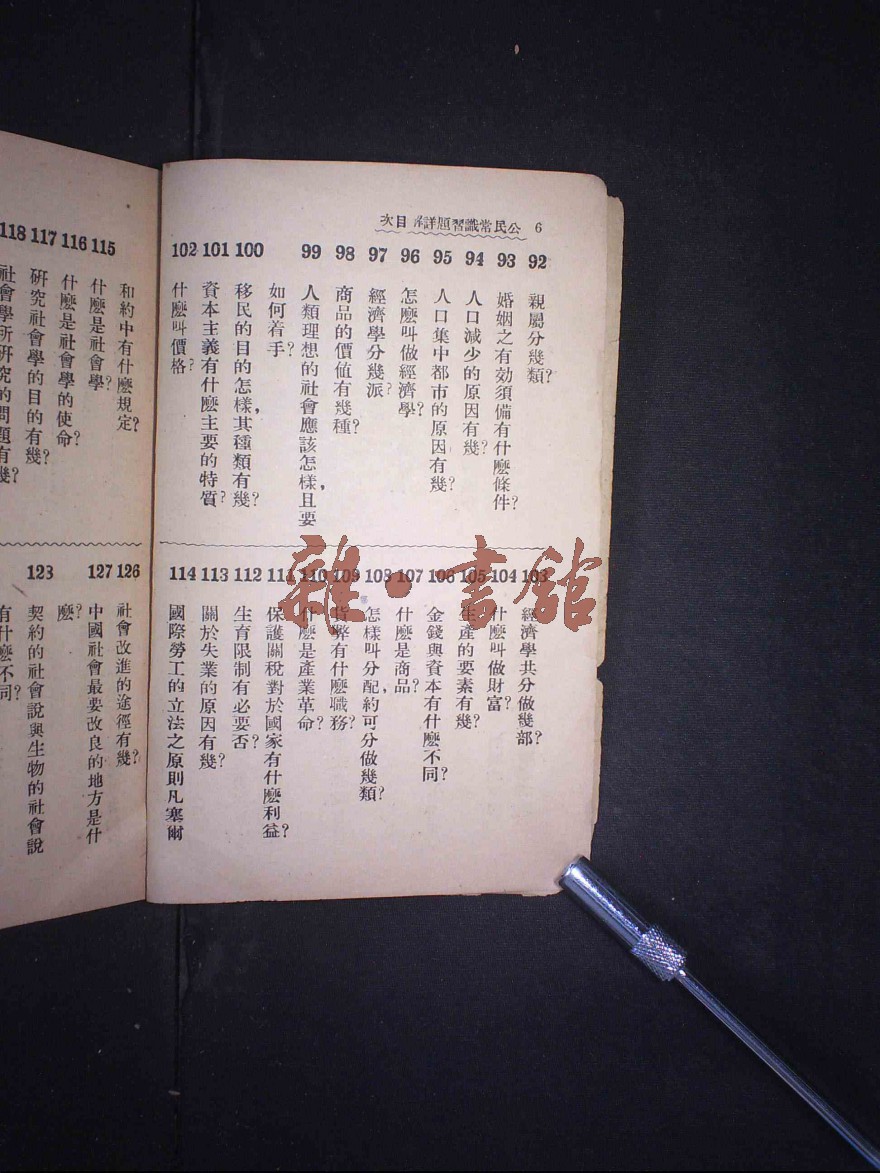 公民常識習題詳解目次 6
92 親屬分幾類?
93 婚姻之有効須備有什麽條件?
94 人口減少的原因有幾?
95 人口集中都市的原因有幾?
96 怎麽叫做經濟學?
97 經濟學分幾派?
98 商品的價値有幾種?
99 人類理想的社會應該怎樣,且要
如何着手?
100 移民的目的怎樣,其種類有幾?
101 資本主義有什麽主要的特質?
102 什麽叫價格?
103 經濟學共分做幾部?
104 什麽叫做財富?
105 生產的要素有幾?
106 金錢與資本有什麽不同?
107 什麽是商品?
108 怎樣叫分配,約可分做幾類?
109 貨幣有什麽職務?
110 什麽是產業革命?
111 保護關稅對於國家有什麽利益?
112 生育限制有必要否?
113 關於失業的原因有幾?
114 國際勞工的立法之原則凡塞爾
和約中有什麽規定?
115 什麽是社會學?
116 什麽是社會學的使命?
117 硏究社會學的目的有幾?
118 社會學所硏究的問題有幾?
126 社會改進的途徑有幾?
127 中國社會最要改良的地方是什
麽?
123 契約的社會說與生物的社會說
有什麽不同?
雜·書館